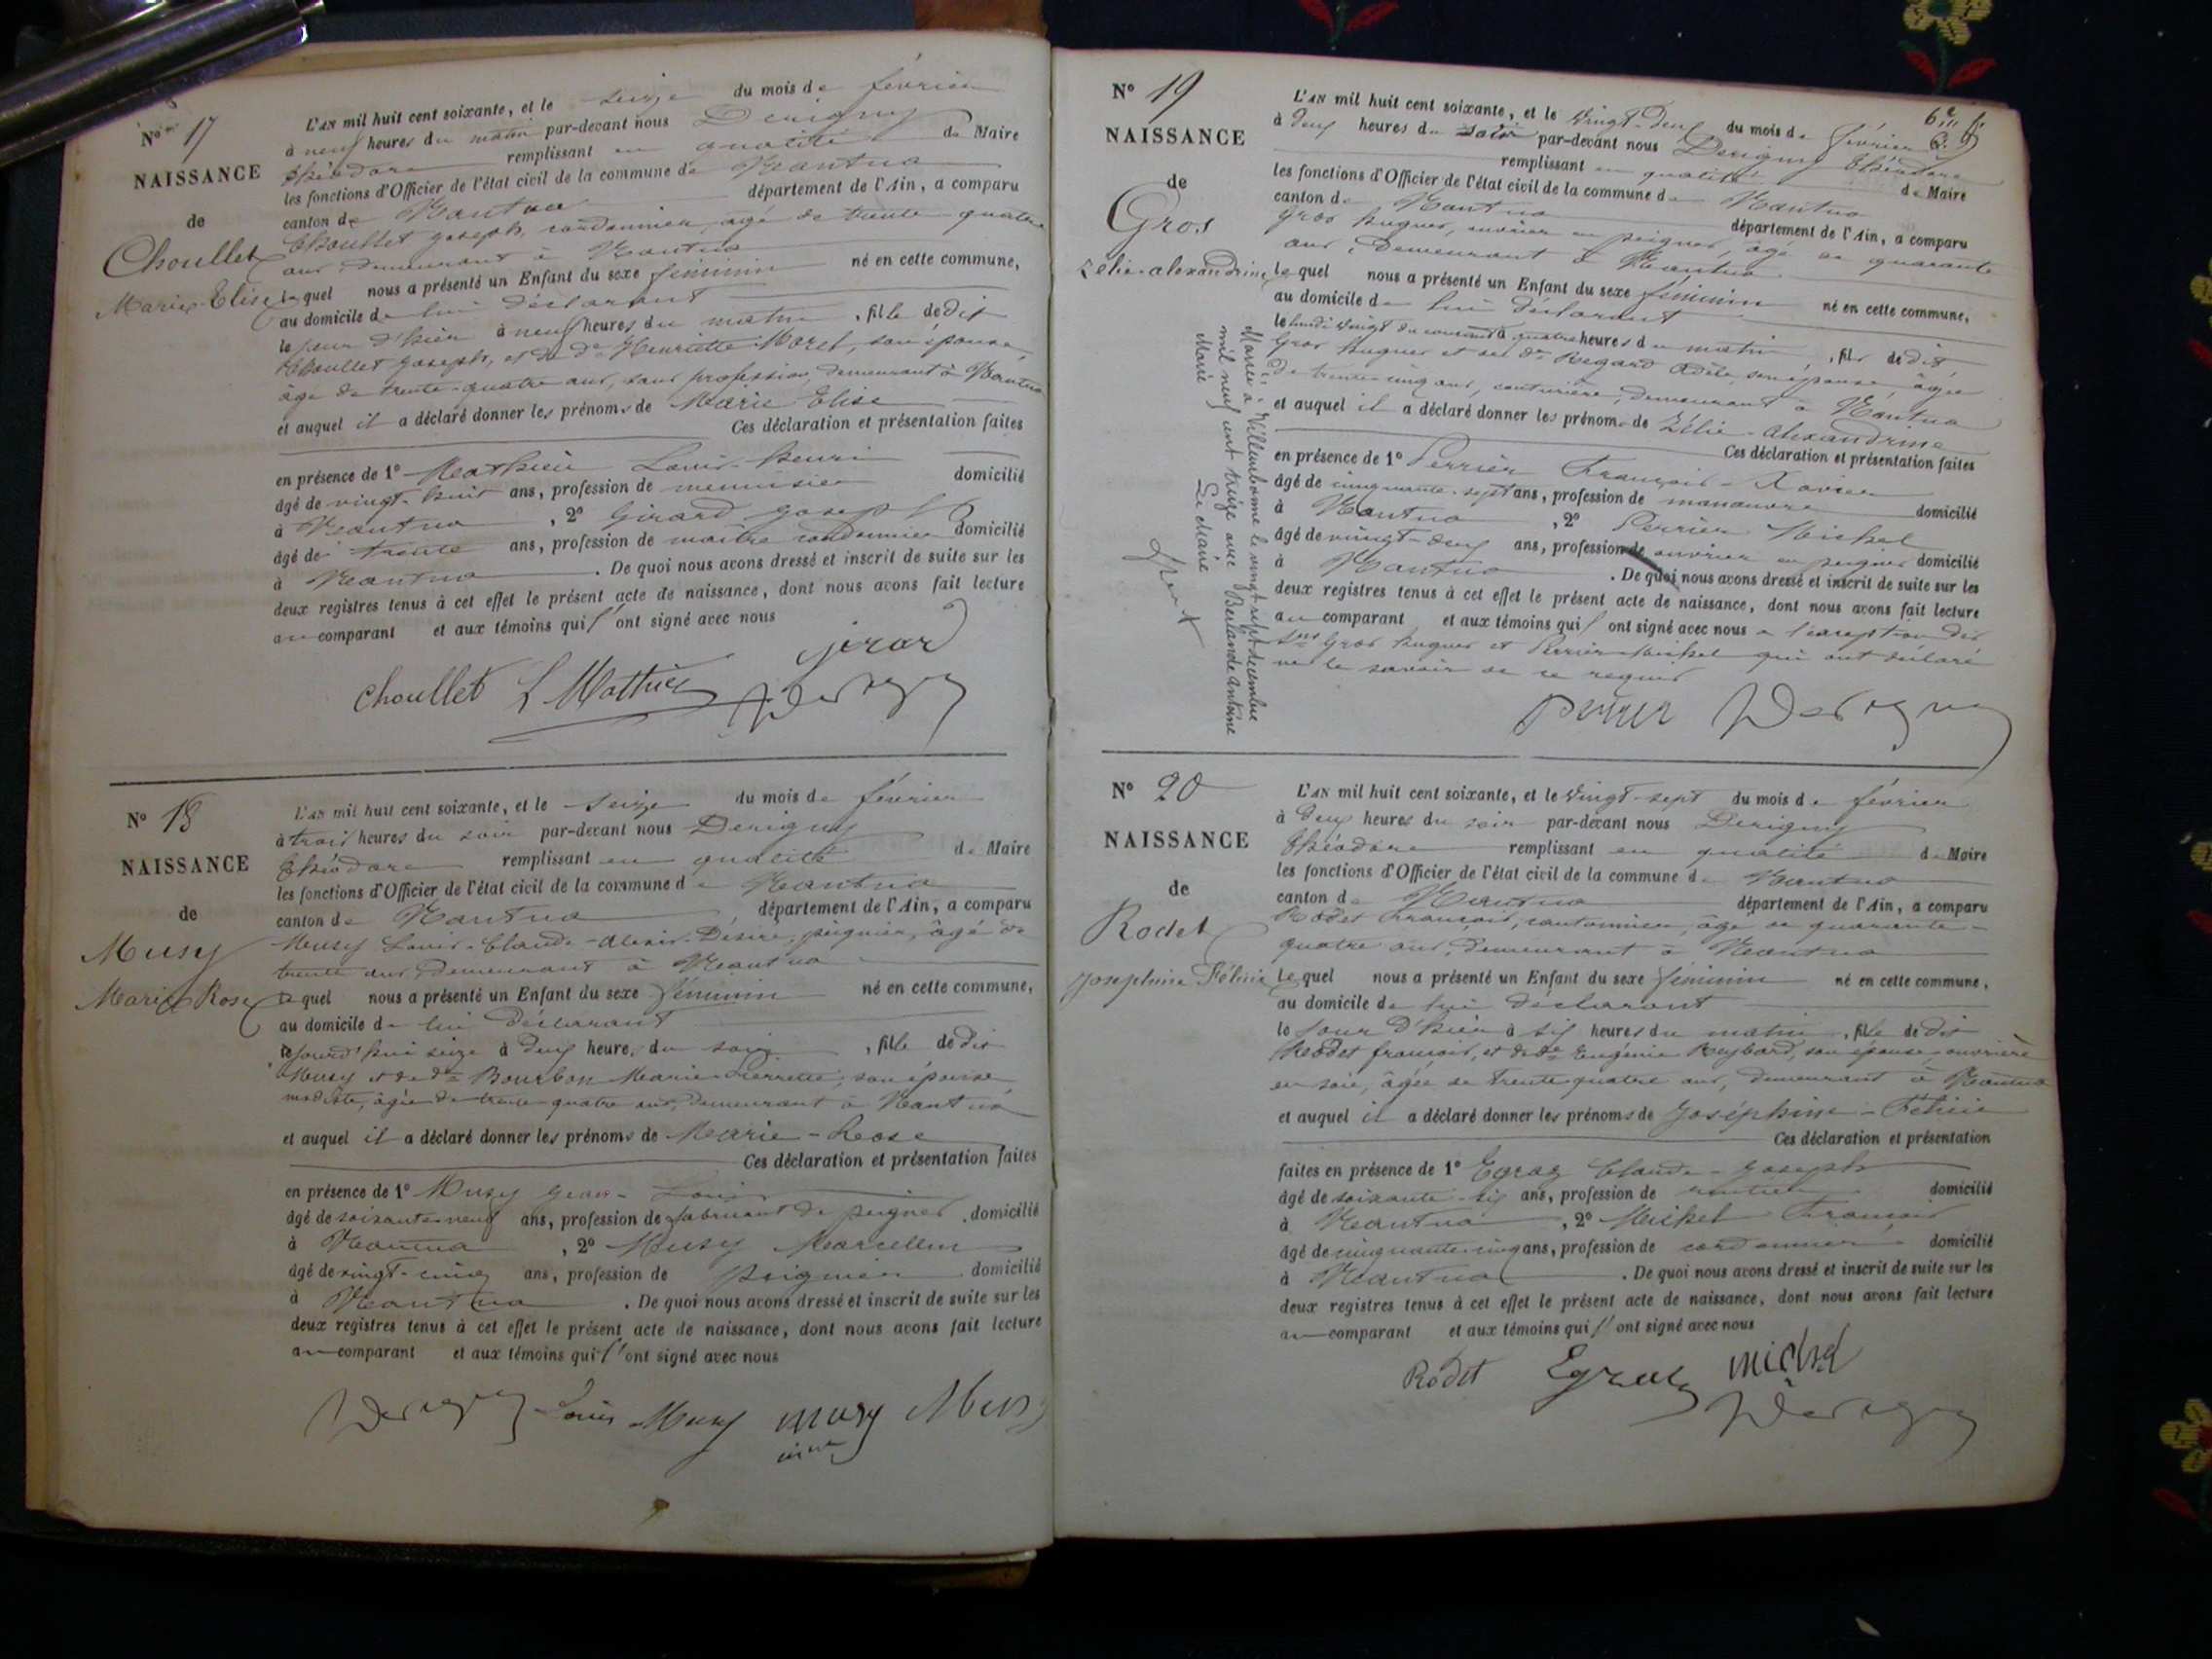 N° 17
NAISSANCE
de
Choullet
Marie-Elise
L'AN mil huit cent soixante, et le seize du mois de février
à neuf heures du matin par-devant nous Derigny
Théodore remplissant en qualité de Maire
les fonctions d'Officier de l'état civil de la commune de Nantua
canton de Nantua département de l'Ain, a comparu
Choullet Joseph, cordonnier, âgé de trente quatre
ans, demeurant à Nantua
lequel nous a présenté un Enfant du sexe féminin né en cette commune,
au domicile de lui déclarant
le jour d'hier à neuf heures du matin, fille dedit
Choullet Joseph, et de de Henriette Morel, son épouse,
âge de trente-quatre ans, sans profession, demeurant à Nantua
et auquel il a déclaré donner les prénoms de Marie Elise
Ces déclaration et présentation faites
en présence de 1° Mathieu Louis-henri
âgé de vingt-huit ans, profession de menuisier domicilié
à Nantua, 2° Girard Joseph
âgé de trente ans, profession de maître cordonnier domicilié
à Nantua. De quoi nous avons dressé et inscrit de suite sur les
deux registres tenus à cet effet le présent acte de naissance, dont nous avons fait lecture
au comparant et aux témoins qui l'ont signé avec nous
girard
choullet L Mathieu Derigny
N° 18
NAISSANCE
de
Musy
Marie Rose
L'AN mil huit cent soixante, et le seize du mois de février
à trois heures du soir par-devant nous Derigny
Théodore remplissant en qualité de Maire
les fonctions d'Officier de l'état civil de la commune de Nantua
canton de Nantua département de l'Ain, a comparu
Musy Louis-Claude-Alexis-Désiré, peignier, âgé de
trente ans, demeurant à Nantua
le quel nous a présenté un Enfant du sexe féminin né en cette commune,
au domicile de lui déclarant
lejourd'hui seize à deux heures du soir, fille dedit
Musy et de de Bourbon Marie Pierrette, son épouse,
modiste, âgée de trente-quatre ans, demeurant à Nantua
et auquel il a déclaré donner les prénoms de Marie-Rose
Ces déclaration et présentation faites
en présence de 1° Musy Jean-Louis
âgé de soixante-neuf ans, profession de fabricant de peignes, domicilié
à Nantua, 2° Musy Marcellin
âgé de vingt-cinq ans, profession de peignier domicilié
à Nantua. De quoi nous avons dressé et inscrit de suite sur les
deux registres tenus à cet effet le présent acte de naissance, dont nous avons fait lecture
au comparant et aux témoins qui l'ont signé avec nous
Derigny Louis Musy musy Musy
N° 19
NAISSANCE
de
Gros
Zélie-alexandrine
Mariée à Villeurbanne le vingt sept décembre
mil neuf cent treize avec Berlande Antoine
Marie Le Maire
6e f.
L'AN mil huit cent soixante, et le vingt-deux du mois de février
à deux heures du soir par-devant nous Derigny Théodore
remplissant en qualité de Maire
les fonctions d'Officier de l'état civil de la commune de Nantua
canton de Nantua département de l'Ain, a comparu
Gros hugues, ouvrier en peignes, âgé de quarante
ans, demeurant à Nantua
lequel nous a présenté un Enfant du sexe féminin né en cette commune,
au domicile de lui déclarant
le lundi vingt du courant à quatre heures du matin, fille dedit
Gros hugues et de de Regard Adèle, son épouse, âgée
de trente-cinq ans, couturière, demeurant à Nantua
et auquel il a déclaré donner les prénoms de Zélie-Alexandrine
Ces déclaration et présentation faites
en présence de 1° Perrier François-Xavier
âgé de cinquante-sept ans, profession de manœuvre domicilié
à Nantua, 2° Perrier Michel
âgé de vingt-deux ans, profession de ouvrier en peignes domicilié
à Nantua. De quoi nous avons dressé et inscrit de suite sur les
deux registres tenus à cet effet le présent acte de naissance, dont nous avons fait lecture
au comparant et aux témoins qui l'ont signé avec nous à l'exception des
srs Gros hugues et Perrier Michel qui ont déclaré
ne le savoir de ce requis
perrier Derigny
N° 20
NAISSANCE
de
Rodet
Josephine Félicie
L'AN mil huit cent soixante, et le vingt-sept du mois de février
à deux heures du soir par-devant nous Derigny
Théodore remplissant en qualité de Maire
les fonctions d'Officier de l'état civil de la commune de Nantua
canton de Nantua département de l'Ain, a comparu
Rodet François, cantonnier, âgé de quarante-
quatre ans, demeurant à Nantua
lequel nous a présenté un Enfant du sexe féminin né en cette commune,
au domicile de lui déclarant
le jour d'hier à six heures du matin, fille dedit
Rodet françois, et de de Eugénie Reybard, son épouse, ouvrière
en soie, âgée de trente quatre ans, demeurant à Nantua
et auquel il a déclaré donner les prénoms de Joséphine-Félicie
Ces déclaration et présentation
faites en présence de 1° Egraz Claude-Joseph
âgé de soixante-six ans, profession de rentier domicilié
à Nantua, 2° Michel François
âgé de cinquante-cinq ans, profession de cordonnier domicilié
à Nantua. De quoi nous avons dressé et inscrit de suite sur les
deux registres tenus à cet effet le présent acte de naissance, dont nous avons fait lecture
au comparant et aux témoins qui l'ont signé avec nous
Rodet Egraz michel
Derigny